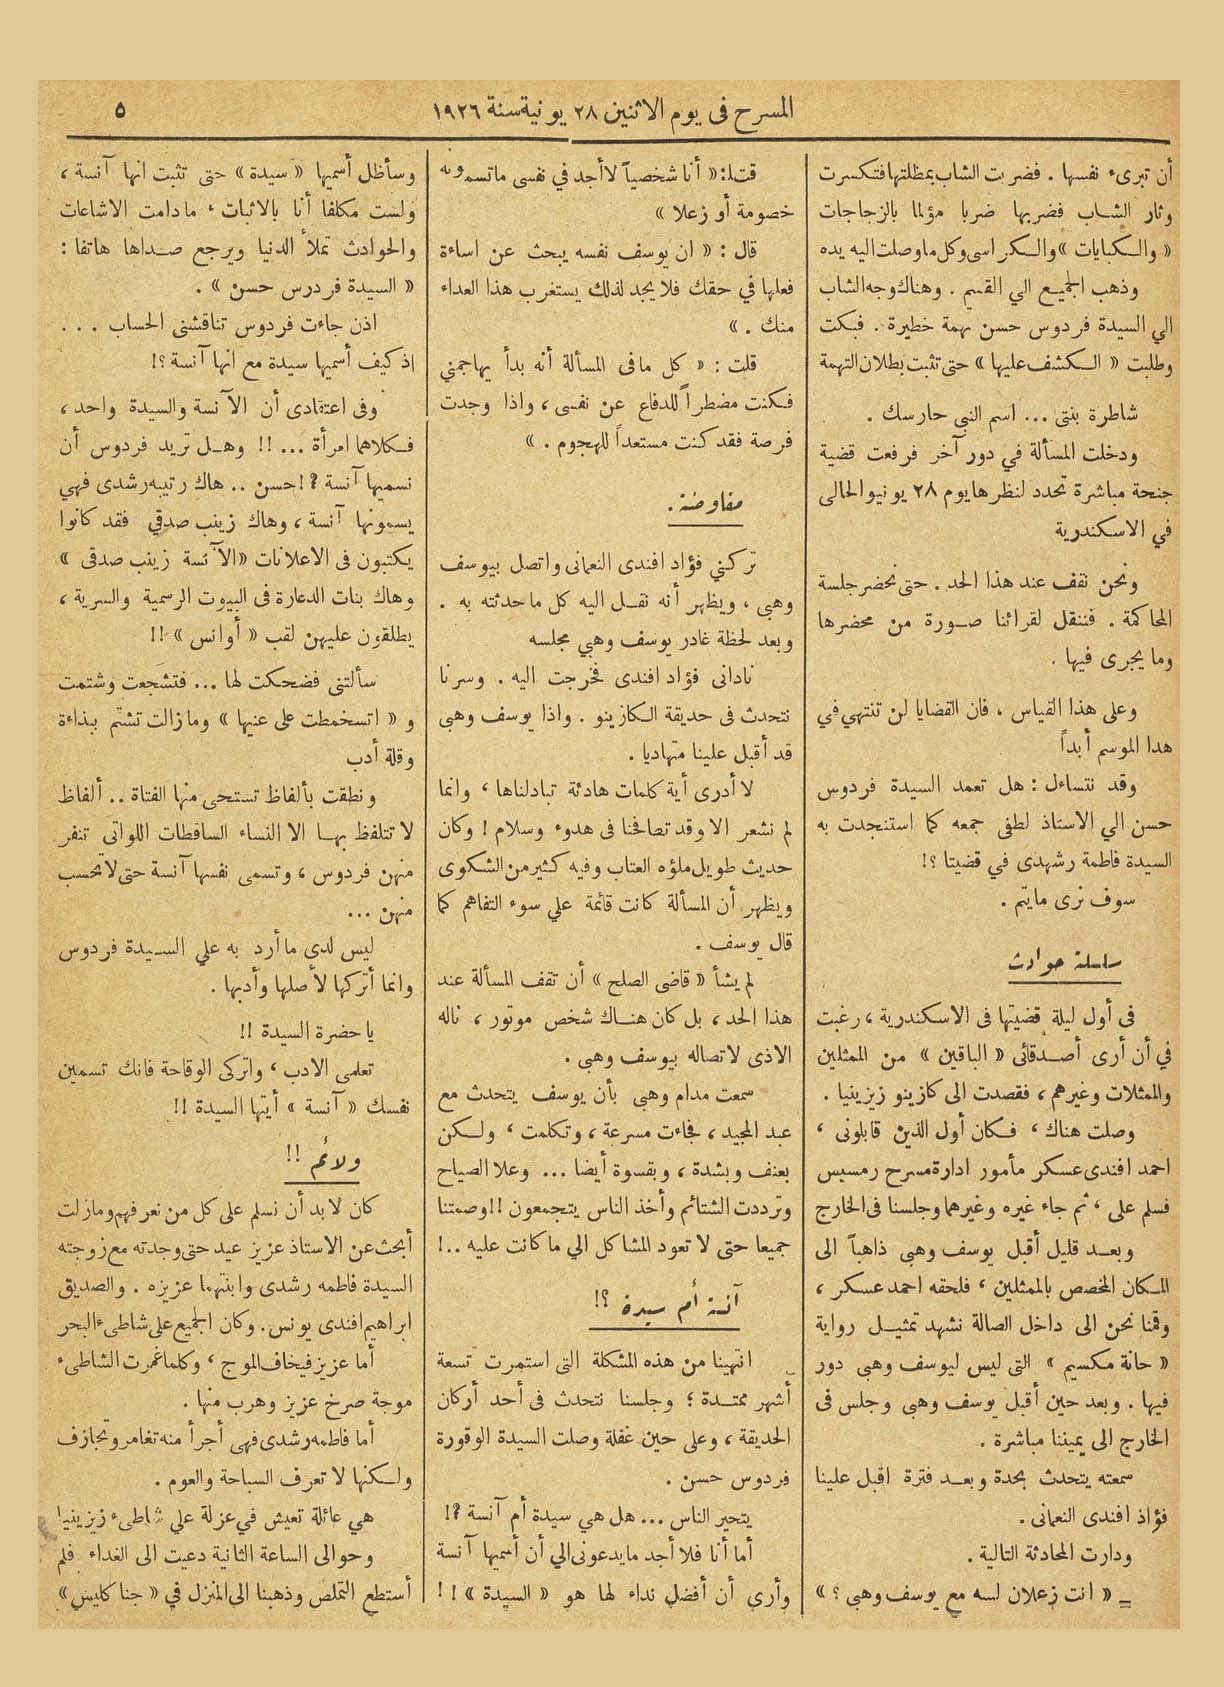 المسرح فى يوم الاثنين ٢٨ يونية سنة ١٩٢٦
٥
أن تبرىء نفسها . فضربت الشاب بمظلتها فتكسرت
وثار الشاب فضربها ضربا مؤلما بالزجاجات
« والكبايات » والكراسى وكل ما وصلت اليه يده
وذهب الجميع الي القسم . وهناك وجه الشاب
الي السيدة فردوس حسن تهمة خطيرة . فبكت
وطلبت « الكشف عليها » حتى تثبت بطلان التهمة
شاطرة بنتى ... اسم النبى حارسك .
ودخلت المسألة في دور آخر فرفعت قضية
جنحة مباشرة تحدد لنظرها يوم ٢٨ يونيو الحالى
في الاسكندرية
ونحن نقف عند هذا الحد . حتى نحضر جلسة
المحاكمة . فننقل لقرائنا صورة من محضرها
وما يجرى فيها .
وعلى هذا القياس ، فان القضايا لن تنتهي في
هدا الموسم أبداً
وقد نتساءل : هل تعمد السيدة فردوس
حسن الي الاستاذ لطفى جمعه كما استنجدت به
السيدة فاطمة رشهدى في قضيتا ؟!
سوف نرى مايتم .
سلسلة حوادث
فى أول ليلة قضيتها فى الاسكندرية ، رغبت
في أن أرى أصدقائى « الباقين » من الممثلين
والممثلات وغيرهم ، فقصدت الى كازينو زيزينيا .
وصلت هناك ، فكان أول الذين قابلونى ،
احمد افندى عسكر مأمور ادارة مسرح رمسيس
فسلم على ، ثم جاء غيره وغيرهما وجلسنا فى الخارج
وبعد قليل أقبل يوسف وهبي ذاهباً الى
المكان المخصص بالممثلين ، فلحقه احمد عسكر ،
وقمنا نحن الى داخل الصالة نشهد تمثيل رواية
« حانة مكسيم » التى ليس ليوسف وهبى دور
فيها . وبعد حين أقبل يوسف وهبى وجلس فى
الخارج الى يميننا مباشرة .
سمعته يتحدث بحدة وبعد فترة اقبل علينا
فؤاد افندى النعمانى .
ودارت المحادثة التالية .
_ « انت زعلان لسه مع يوسف وهبى ؟ »
قتلـ: « أنا شخصياً لا أجد في نفسى ما تسمونه
خصومة أو زعلا »
قال : « ان يوسف نفسه يبحث عن اساءة
فعلها في حقك فلا يجد لذلك يستغرب هذا العداء
منك . »
قلت : « كل مافى المسألة أنه بدأ يهاجمني
فكنت مضطراً للدفاع عن نفسى ، واذا وجدت
فرصة فقد كنت مستعداً للهجوم . »
مفاوضة .
تركني فؤاد افندى النعمانى واتصل بيوسف
وهبى ، ويظهر أنه نقل اليه كل ما حدثته به .
وبعد لحظة غادر يوسف وهبي مجلسه
نادانى فؤاد افندى فخرجت اليه . وسرنا
نتحدث فى حديقة الكازينو . واذا يوسف وهبى
قد أقبل علينا متهاديا .
لا أدرى أية كلمات هادئة تبادلناها ، وانما
لم نشعر الا وقد تصافحنا فى هدوء وسلام ! وكان
حديث طويل ملؤه العتاب وفيه كثير من الشكوى
ويظهر أن المسألة كانت قائمة علي سوء التفاهم كما
قال يوسف .
لم يشأ « قاضى الصلح » أن تقف المسألة عند
هذا الحد ، بل كان هناك شخص موتور ، ناله
الاذى لاتصاله بيوسف وهبى .
سمعت مدام وهبى بأن يوسف يتحدث مع
عبد المجيد ، فجاءت مسرعة ، وتكلمت ، ولكن
بعنف وبشدة ، وبقسوة أيضا ... وعلا الصياح
وترددت الشتائم وأخذ الناس يتجمعون !! وصمتنا
جميعا حتى لا تعود المشاكل الي ما كانت عليه ..!
آنسة أم سيدة ؟!
انتهينا من هذه المشكلة التى استمرت تسعة
أشهر ممتدة ؛ وجلسنا نتحدث فى أحد أركان
الحديقة ، وعلى حين غفلة وصلت السيدة الوقورة
فردوس حسن .
يتحير الناس ... هل هي سيدة أم آنسة ؟!
أما أنا فلا أجد ما يدعونى الي أن أسميها آنسة
وأرى أن أفضل نداء لها هو « السيدة » !!
وسأظل أسميها « سيدة » حتى تثبت انها آنسة ،
ولست مكلفا أنا بالاثبات ، ما دامت الاشاعات
والحوادث تملأ الدنيا ويرجع صداها هاتفا :
« السيدة فردرس حسن » .
اذن جاءت فردوس تناقشنى الحساب ...
إذ كيف أسميها سيدة مع انها آنسة ؟!
وفى اعتقادى أن الآنسة والسيدة واحد ،
فكلاهما امرأة ... !! وهل تريد فردوس أن
نسميها آنسة ؟! حسن .. هاك رتيبه رشدى فهي
يسمونها آنسة ، وهاك زينب صدقي فقد كانوا
يكتبون فى الاعلانات « الآنسة زينب صدقى »
وهاك بنات الدعارة فى البيوت الرسمية والسرية ،
يطلقون عليهن لقب « أوانس » !!
سألتنى فضحكت لها ... فتشجعت وشتمت
و « اتسخمطت على عنيها » ومازالت تشتم ببذاءة
وقلة أدب
ونطقت بألفاظ تستحى منها الفتاة .. ألفاظ
لا تتلفظ بها الا النساء الساقطات اللواتى تنفر
منهن فردوس ، وتسمى نفسها آنسة حتى لا تحسب
منهن ...
ليس لدى ما أرد به علي السيدة فردوس
وانما أتركها لأصلها وأدبها .
يا حضرة السيدة !!
تعلمى الادب ، واتركى الوقاحة فانك تسمين
نفسك « آنسة » أيتها السيدة !!
ولائم !!
كان لا بد أن نسلم على كل من نعرفهم ومازلت
أبحث عن الاستاذ عزيز عيد حتى وجدته مع زوجته
السيدة فاطمه رشدى وابنتهما عزيزه . والصديق
ابراهيم افندى يونس . وكان الجميع على شاطىء البحر
أما عزيز فيخاف الموج ، وكلما غمرت الشاطىء
موجة صرخ عزيز وهرب منها .
أما فاطمه رشدى فهى أجرأ منه تغامر وتجازف
ولكنها لا تعرف السباحة والعوم .
هي عائلة تعيش في عزلة علي شاطىء زيزينيا
وحوالى الساعة الثانية دعيت الى الغداء فلم
أستطع التملص وذهبنا الى المنزل في « جناكليس »